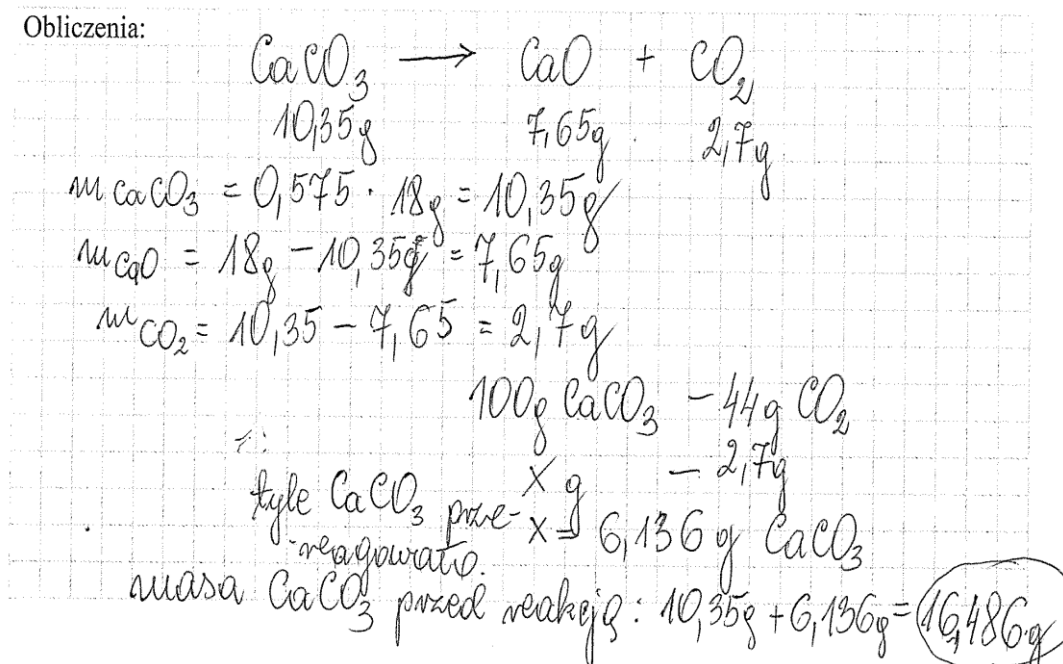 Obliczenia:
CaCO₃ → CaO + CO₂
10,35g 7,65g 2,7g
m CaCO₃ = 0,575 · 18g = 10,35g
m CaO = 18g - 10,35g = 7,65g
m CO₂ = 10,35 - 7,65 = 2,7g
100g CaCO₃ - 44g CO₂
x g - 2,7g
tyle CaCO₃ prze- x = 6,136 g CaCO₃
-reagowało.
masa CaCO₃ przed reakcją: 10,35g + 6,136g = 16,486g